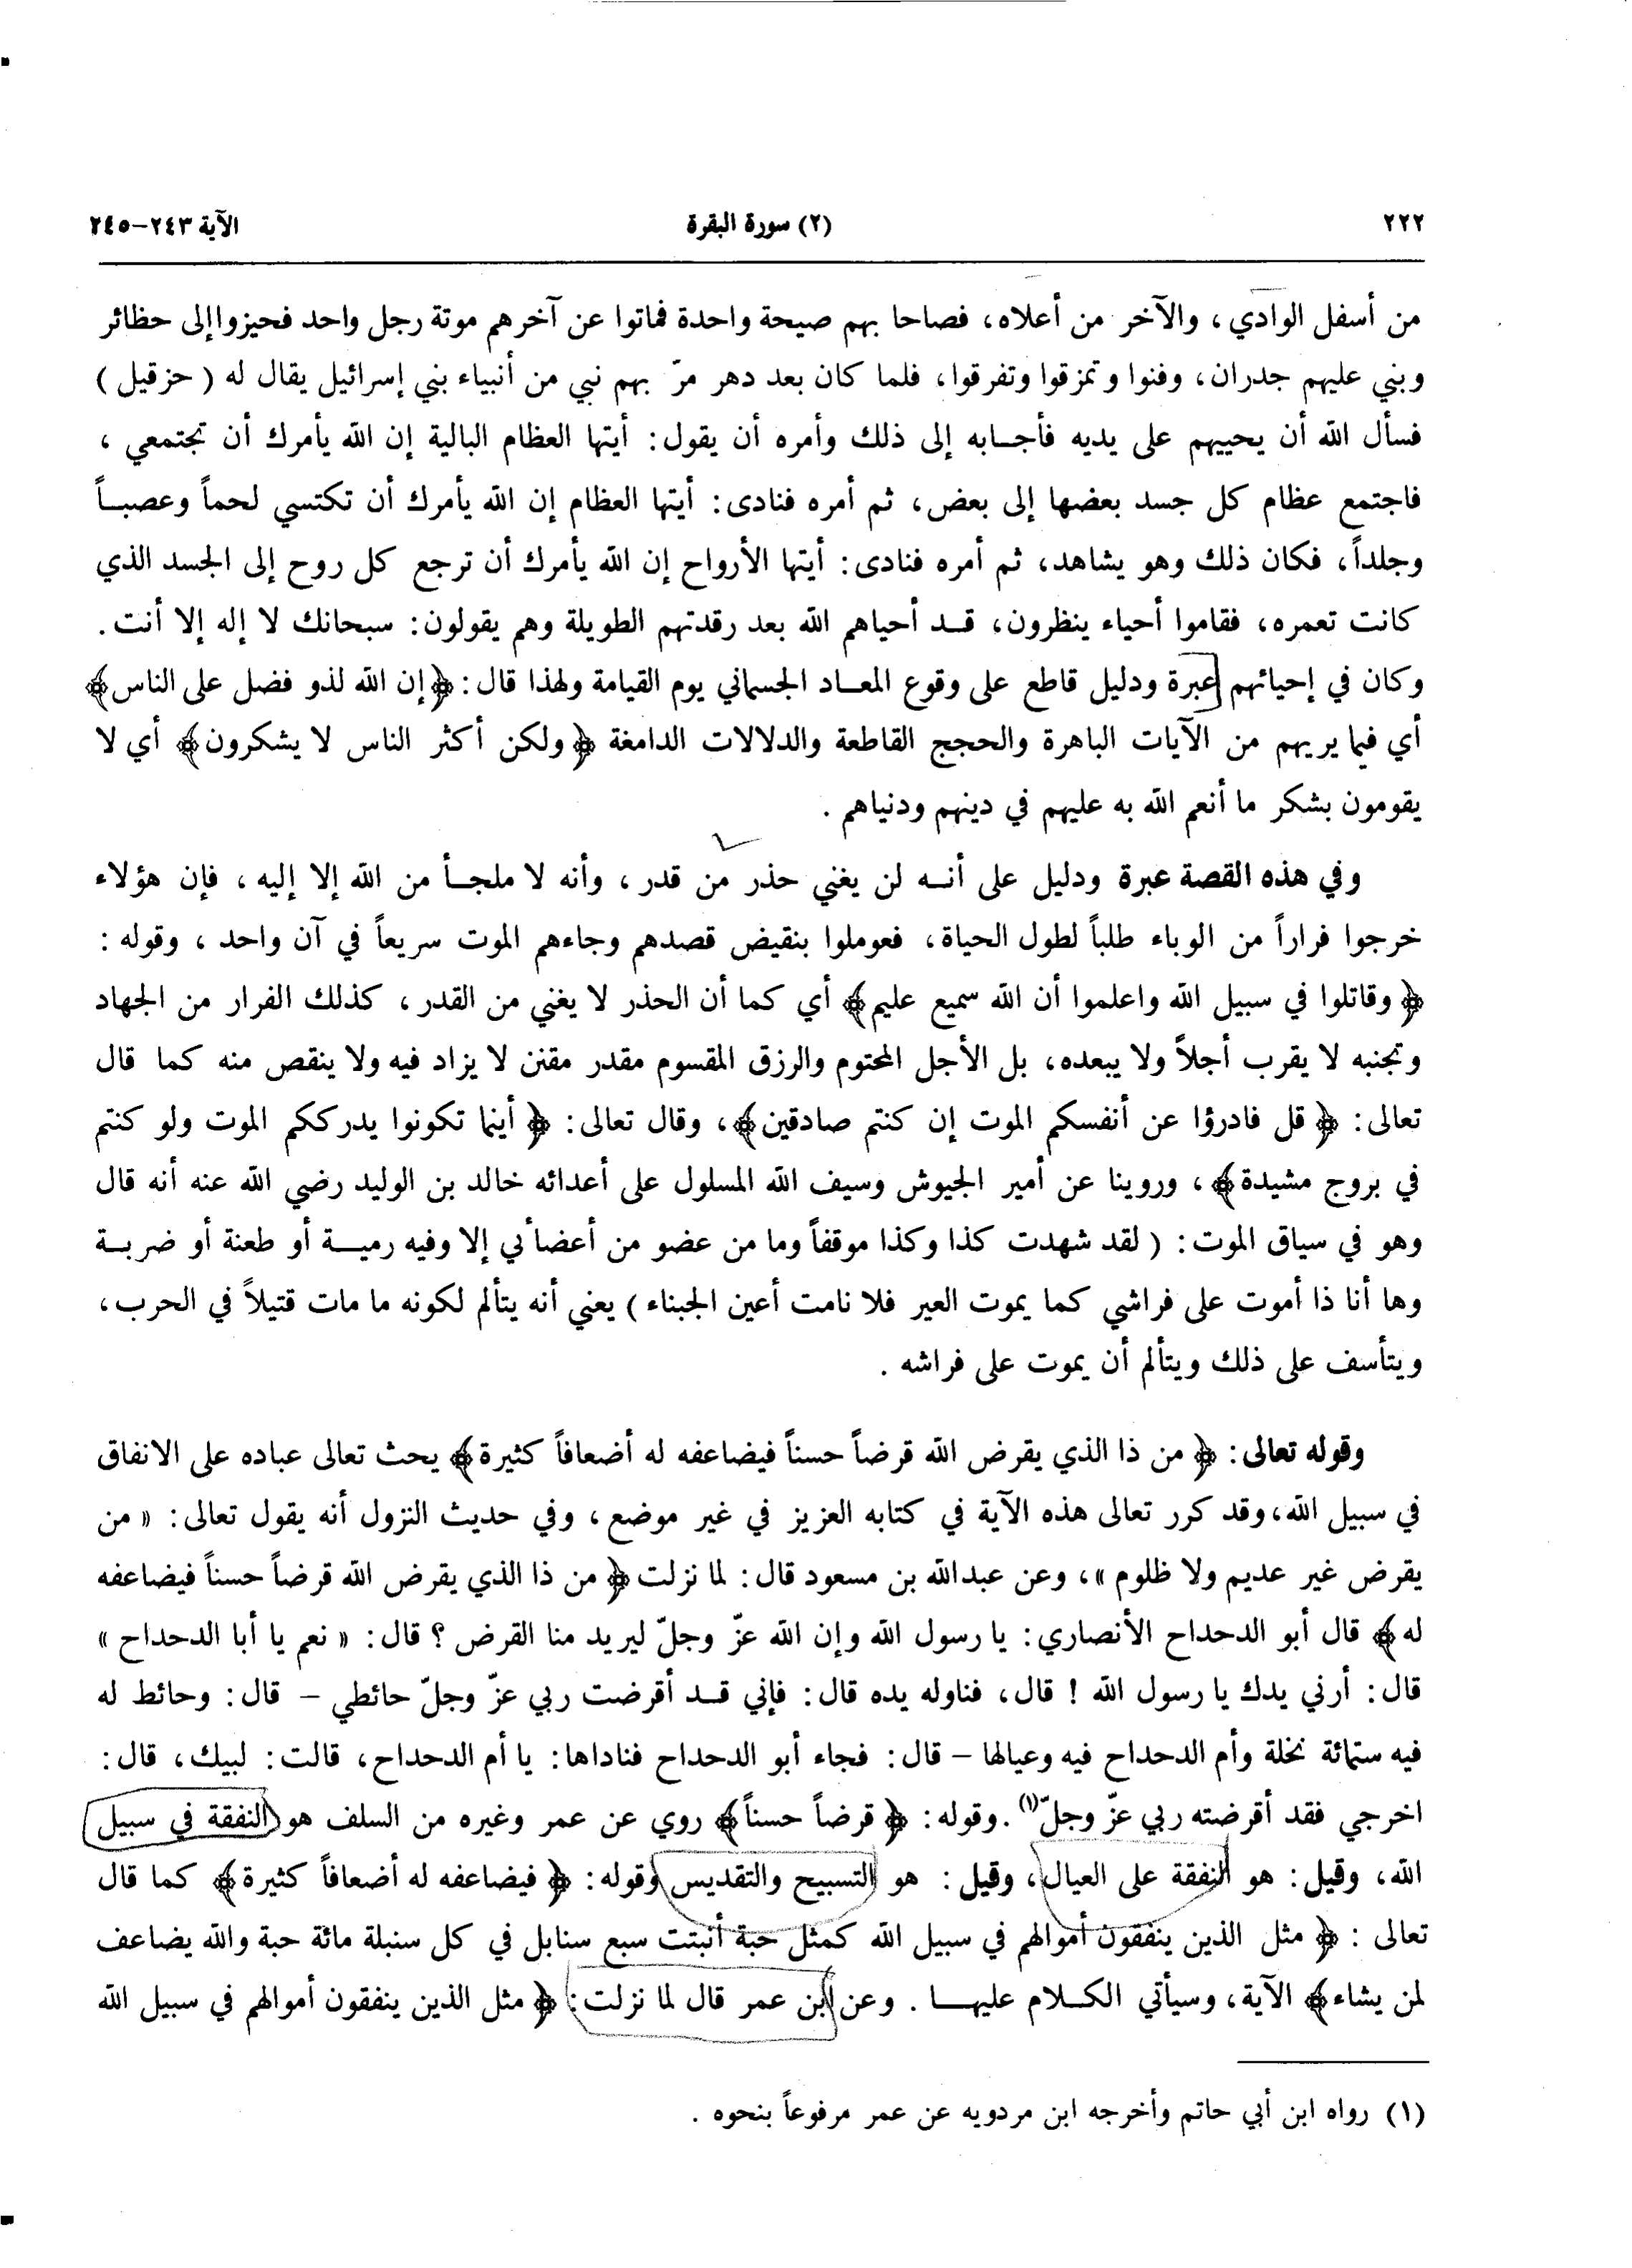 ٢٢٢ (٢) سورة البقرة الآية ٢٤٣-٢٤٥
من أسفل الوادي، والآخر من أعلاه، فصاحا بهم صيحة واحدة فماتوا عن آخرهم موتة رجل واحد فحيزوا إلى حظائر
وبني عليهم جدران، وفنوا وتمزقوا وتفرقوا، فلما كان بعد دهر مرّ بهم نبي من أنبياء بني إسرائيل يقال له ( حزقيل )
فسأل الله أن يحييهم على يديه فأجـابه إلى ذلك وأمره أن يقول: أيتها العظام البالية إن الله يأمرك أن تجتمعي،
فاجتمع عظام كل جسد بعضها إلى بعض، ثم أمره فنادى: أيتها العظام إن الله يأمرك أن تكتسي لحماً وعصبـاً
وجلداً، فكان ذلك وهو يشاهد، ثم أمره فنادى: أيتها الأرواح إن الله يأمرك أن ترجع كل روح إلى الجسد الذي
كانت تعمره، فقاموا أحياء ينظرون، قـد أحياهم الله بعد رقدتهم الطويلة وهم يقولون: سبحانك لا إله إلا أنت.
وكان في إحيائهم عبرة ودليل قاطع على وقوع المعـاد الجسماني يوم القيامة ولهذا قال: ﴿إن الله لذو فضل على الناس﴾
أي فيما يريهم من الآيات الباهرة والحجج القاطعة والدلالات الدامغة ﴿ولكن أكثر الناس لا يشكرون﴾ أي لا
يقومون بشكر ما أنعم الله به عليهم في دينهم ودنياهم .
وفي هذه القصة عبرة ودليل على أنـه لن يغني حذر من قدر، وأنه لا ملجـأ من الله إلا إليه، فإن هؤلاء
خرجوا فراراً من الوباء طلباً لطول الحياة، فعوملوا بنقيض قصدهم وجاءهم الموت سريعاً في آن واحد، وقوله:
﴿وقاتلوا في سبيل الله واعلموا أن الله سميع عليم﴾ أي كما أن الحذر لا يغني من القدر، كذلك الفرار من الجهاد
وتجنبه لا يقرب أجلاً ولا يبعده، بل الأجل المحتوم والرزق المقسوم مقدر مقنن لا يزاد فيه ولا ينقص منه كما قال
تعالى: ﴿قل فادرؤا عن أنفسكم الموت إن كنتم صادقين﴾، وقال تعالى: ﴿أينما تكونوا يدرككم الموت ولو كنتم
في بروج مشيدة﴾، وروينا عن أمير الجيوش وسيف الله المسلول على أعدائه خالد بن الوليد رضي الله عنه أنه قال
وهو في سياق الموت: ( لقد شهدت كذا وكذا موقفاً وما من عضو من أعضائي إلا وفيه رميـة أو طعنة أو ضربـة
وها أنا ذا أموت على فراشي كما يموت العير فلا نامت أعين الجبناء ) يعني أنه يتألم لكونه ما مات قتيلاً في الحرب،
ويتأسف على ذلك ويتألم أن يموت على فراشه .
وقوله تعالى: ﴿من ذا الذي يقرض الله قرضاً حسناً فيضاعفه له أضعافاً كثيرة﴾ يحث تعالى عباده على الانفاق
في سبيل الله، وقد كرر تعالى هذه الآية في كتابه العزيز في غير موضع، وفي حديث النزول أنه يقول تعالى: « من
يقرض غير عديم ولا ظلوم »، وعن عبدالله بن مسعود قال: لما نزلت ﴿من ذا الذي يقرض الله قرضاً حسناً فيضاعفه
له﴾ قال أبو الدحداح الأنصاري: يا رسول الله وإن الله عزّ وجلّ ليريد منا القرض؟ قال: « نعم يا أبا الدحداح »
قال: أرني يدك يا رسول الله ! قال، فناوله يده قال: فإني قـد أقرضت ربي عزّ وجلّ حائطي – قال: وحائط له
فيه ستمائة نخلة وأم الدحداح فيه وعيالها – قال: فجاء أبو الدحداح فناداها: يا أم الدحداح، قالت: لبيك، قال:
اخرجي فقد أقرضته ربي عزّ وجلّ(١). وقوله: ﴿قرضاً حسناً﴾ روي عن عمر وغيره من السلف هو النفقة في سبيل
الله، وقيل: هو النفقة على العيال، وقيل: هو التسبيح والتقديس وقوله: ﴿فيضاعفه له أضعافاً كثيرة﴾ كما قال
تعالى: ﴿مثل الذين ينفقون أموالهم في سبيل الله كمثل حبة أنبتت سبع سنابل في كل سنبلة مائة حبة والله يضاعف
لمن يشاء﴾ الآية، وسيأتي الكـلام عليهـا . وعن ابن عمر قال لما نزلت: ﴿مثل الذين ينفقون أموالهم في سبيل الله
(١) رواه ابن أبي حاتم وأخرجه ابن مردويه عن عمر مرفوعاً بنحوه .